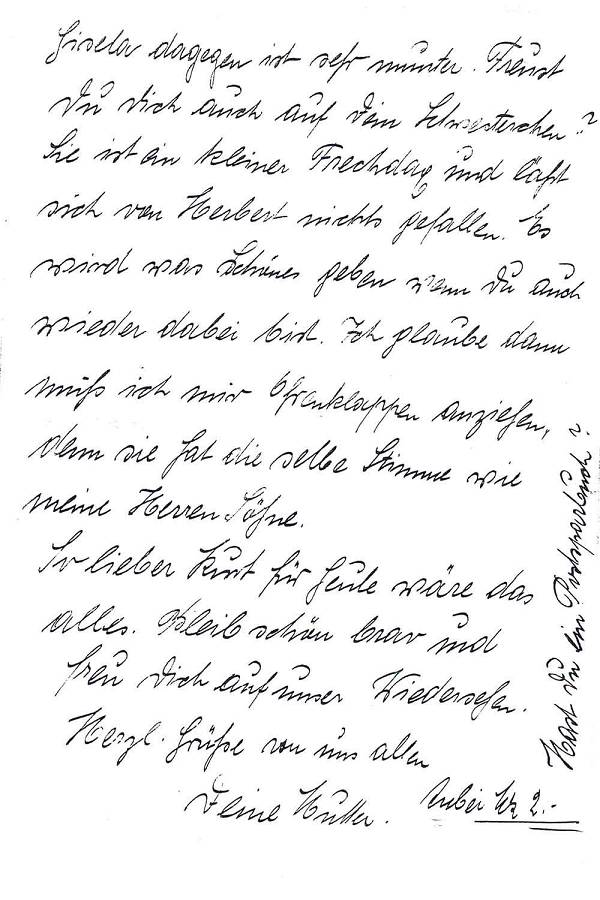 Gisela dagegen ist sehr munter. Freust
Du Dich auch auf Dein Schwesterchen?
Sie ist ein kleiner Frechdag und läßt
sich von Herbert nichts gefallen. Es
wird was Schönes geben wenn Du auch
wieder dabei bist. Ich glaube dann
muß ich mir Ohrenklappen anziehen,
denn sie hat die selbe Stimme wie
meine Herren Söhne.
So lieber Kurt für heute wäre das
alles. Bleib schön brav und
freu Dich auf unser Wiedersehen.
Herzl. Grüße von uns allen
Deine Mutter.
Anbei 2.-
Hast Du ein Postsparbuch?